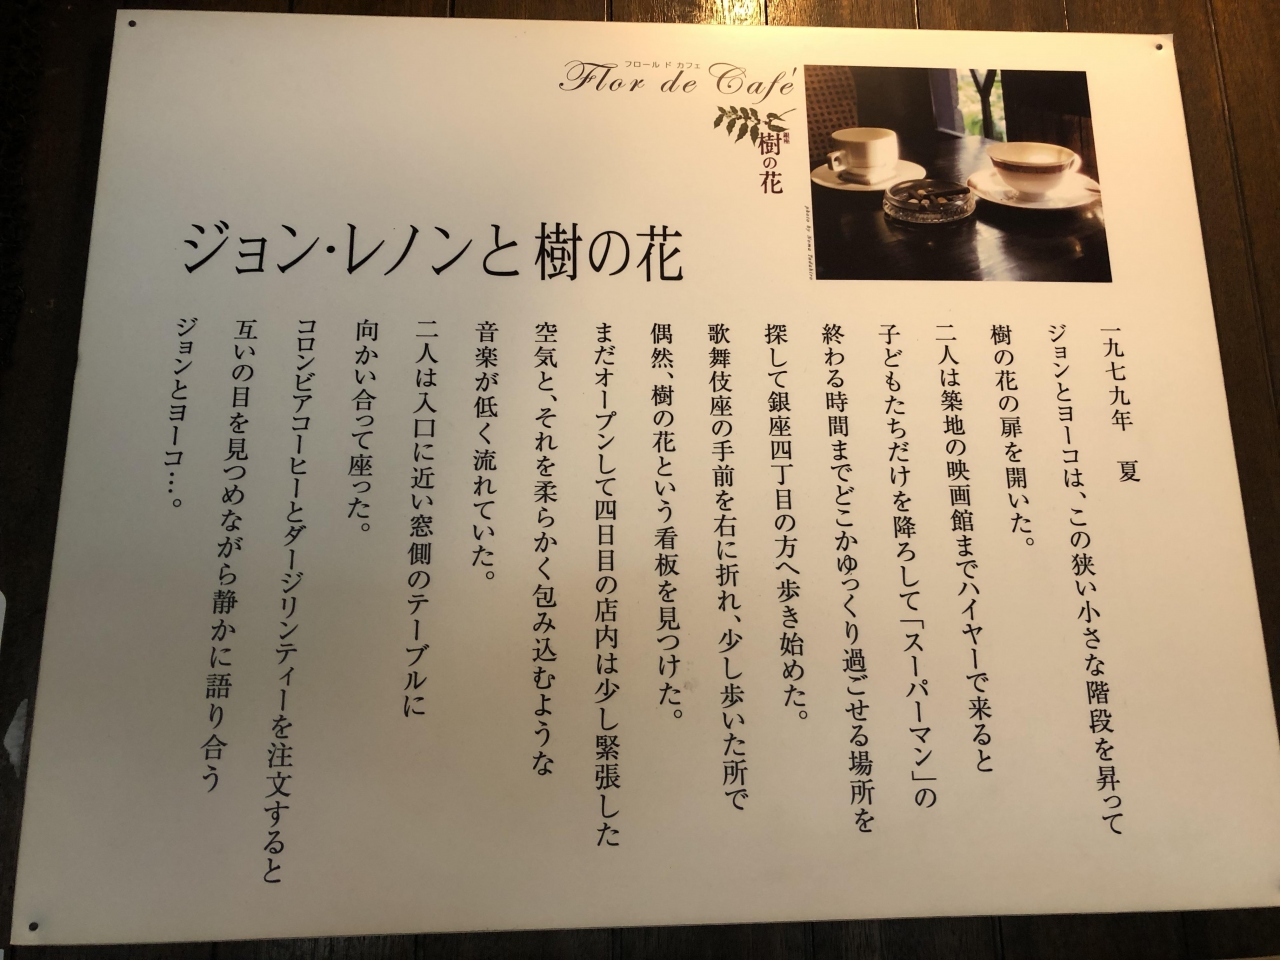 フロール ド カフェ
Flor de Café
銀座
樹の花
photo by Numa Tadahiro
ジョン・レノンと樹の花
一九七九年 夏
ジョンとヨーコは、この狭い小さな階段を昇って
樹の花の扉を開いた。
二人は築地の映画館までハイヤーで来ると
子どもたちだけを降ろして「スーパーマン」の
終わる時間までどこかゆっくり過ごせる場所を
探して銀座四丁目の方へ歩き始めた。
歌舞伎座の手前を右に折れ、少し歩いた所で
偶然、樹の花という看板を見つけた。
まだオープンして四日目の店内は少し緊張した
空気と、それを柔らかく包み込むような
音楽が低く流れていた。
二人は入口に近い窓側のテーブルに
向かい合って座った。
コロンビアコーヒーとダージリンティーを注文すると
互いの目を見つめながら静かに語り合う
ジョンとヨーコ…。